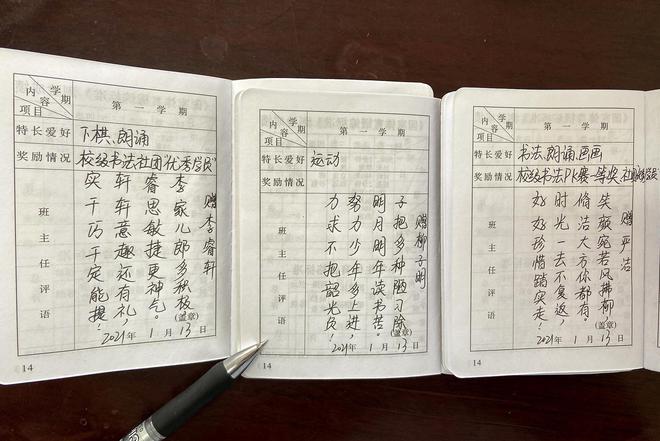 内容 学期
项目
第一学期
特长爱好 下棋、朗诵
奖励情况 校级书法社团“优秀学员”
班主任评语
赠李睿轩
李家儿郎多积极
睿思敏捷更神气。
轩轩意趣还有礼,
实干巧干定能提!
(盖章)
2021年1月13日
14
内容 学期
项目
第一学期
特长爱好 运动
奖励情况
班主任评语
赠柳子明
子把多种陋习除
明月明年读书苦。
努力少年多上进,
力求不把韶光负!
(盖章)
2021年1月13日
14
内容 学期
项目
第一学期
特长爱好 书法、朗诵、画画
奖励情况 校级书法PK赛一等奖,社团
班主任评语
赠严洁
笑颜宛若风拂柳
洁大方你都有。
时光一去不复返,
好好珍惜踏实走!
(盖章)
2021年1月13日
14